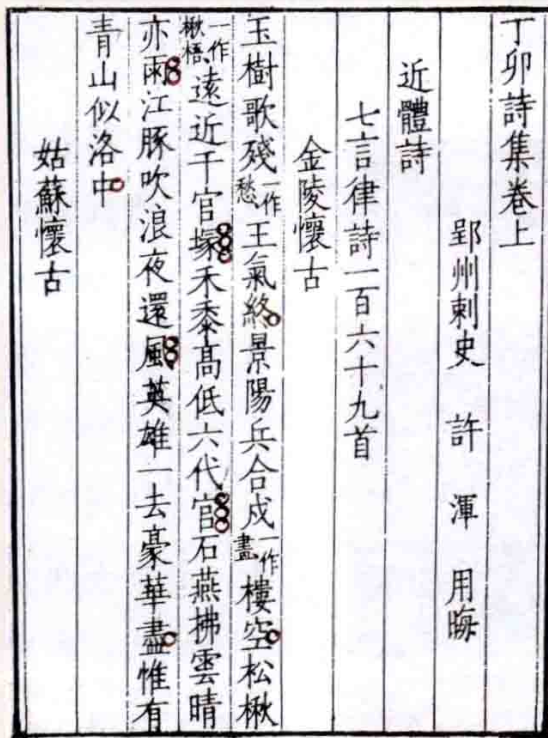 丁卯詩集卷上
郢州刺史 許 渾 用晦
近體詩
七言律詩一百六十九首
金陵懷古
玉樹歌殘一作愁王氣終景陽兵合戍一作畫樓空松楸
一作楸梧遠近千官塚禾黍高低六代官石燕拂雲晴
亦雨江豚吹浪夜還風英雄一去豪華盡惟有
青山似洛中
姑蘇懷古